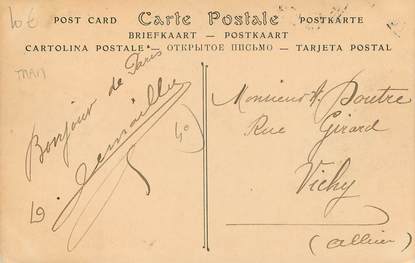 10€
POST CARD Carte Postale POSTKARTE
BRIEFKAART — POSTKAART
CARTOLINA POSTALE — ОТКРЫТОЕ ПИСЬМО — TARJETA POSTAL
TRAM
Bonjour de Paris
40
Monsieur A. Poutre
Rue Girard
Vichy
(Allier)